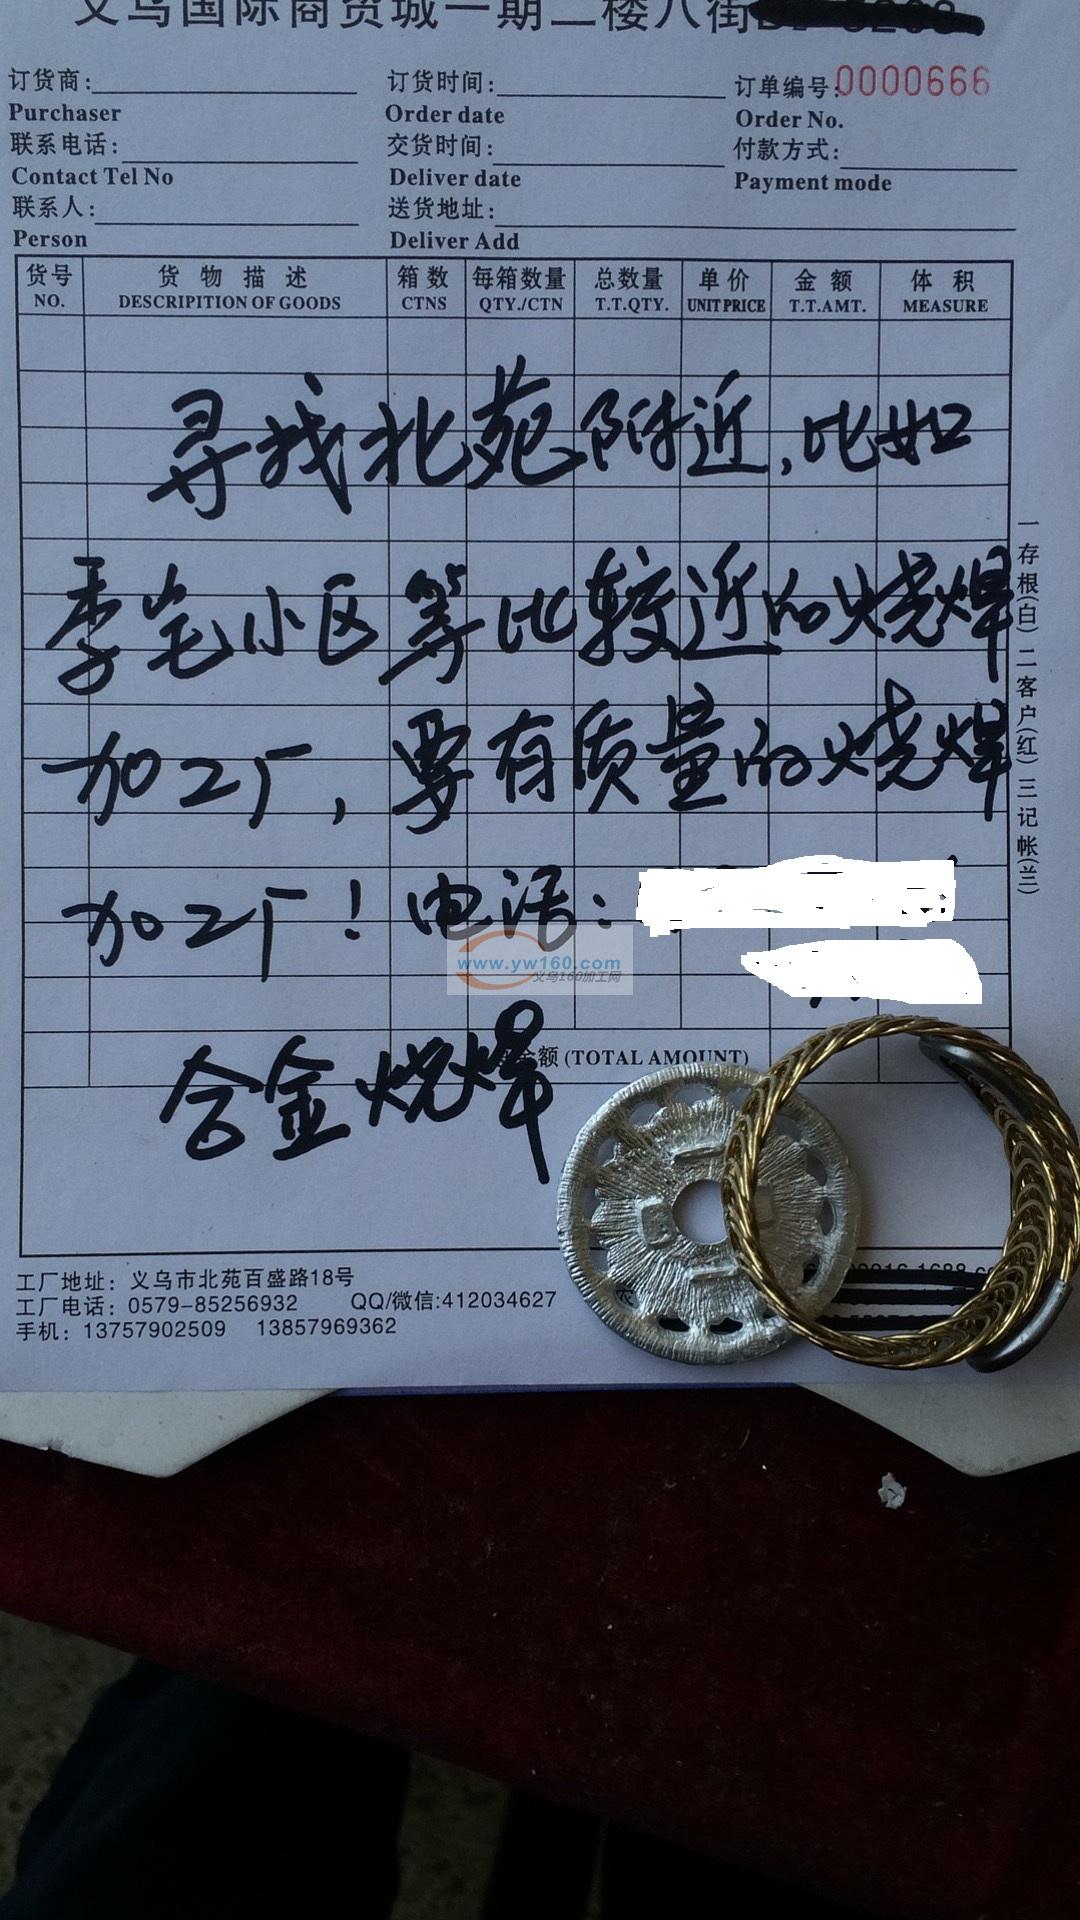 义乌国际商贸城一期二楼八街
订货商: 订货时间: 订单编号:0000666
Purchaser Order date Order No.
联系电话: 交货时间: 付款方式:
Contact Tel No Deliver date Payment mode
联系人: 送货地址:
Person Deliver Add
货号 货物描述 箱数 每箱数量 总数量 单价 金额 体积
NO. DESCRIPITION OF GOODS CTNS QTY./CTN T.T.QTY. UNIT PRICE T.T.AMT. MEASURE
寻找北苑附近,比如
季宅小区等比较近的烧焊
加工厂,要有质量的烧焊
加工厂!电话:
www.yw160.com
义乌160加工网
合金烧焊
金额 (TOTAL AMOUNT)
一存根(白)二客户(红)三记帐(兰)
工厂地址：义乌市北苑百盛路18号
工厂电话：0579-85256932 QQ/微信:412034627
手机：13757902509 13857969362